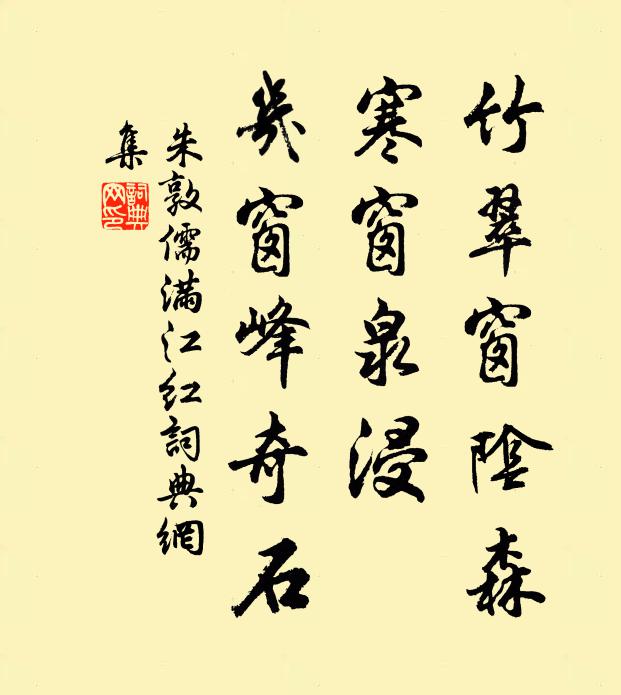 竹翠窗陰森
寒窗泉浸
幾窗峰奇石
朱敦儒滿江紅詞典網
集
詞典
网印